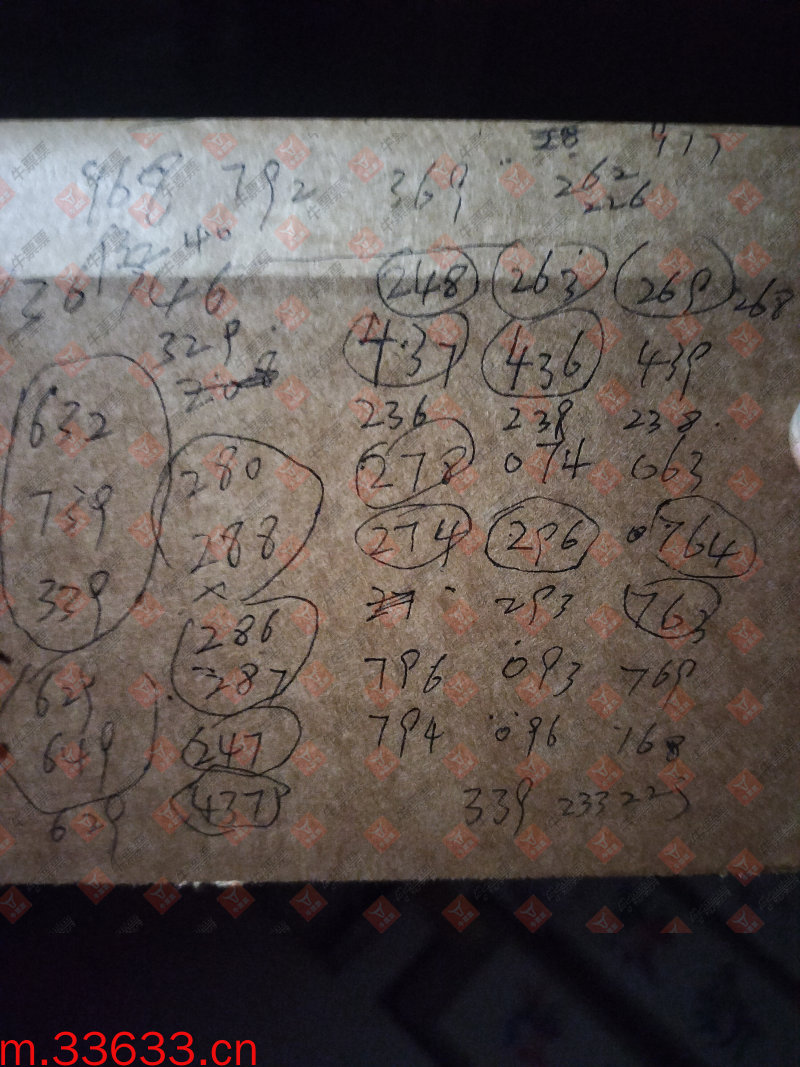 28 977
968 792 369 262
226
122 40
36 146 248 263 269 268
329 437 436 439
708
632 236 239 238
280 278 074 063
739 288 274 296 0764
339 293 763
286
629 287 796 093 769
649 247 794 096 168
629 437 339 233 225
m.33633.cn